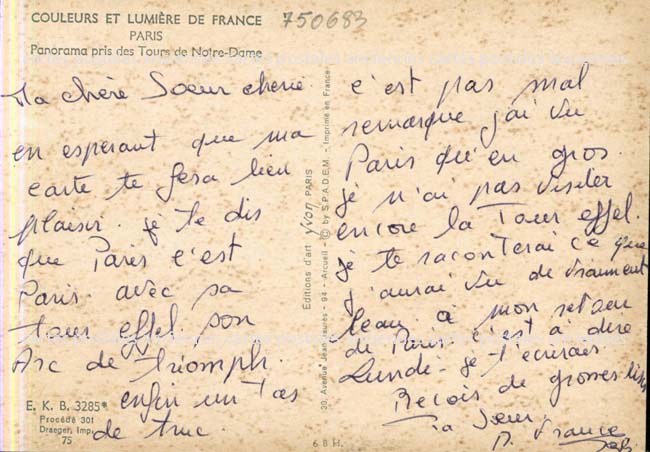 COULEURS ET LUMIÈRE DE FRANCE
PARIS
Panorama pris des Tours de Notre-Dame
750683
Ma chère Soeur cherie
en esperant que ma
carte te fera bien
plaisir. je te dis
que Paris c'est
Paris avec sa
tour effel son
Arc de Triomph.
enfin un Tas
de truc.
E. K. B. 3285*
Procédé 301
Draeger, Imp.
75
Editions d'art yvon PARIS
30, Avenue Jean Jaurès - 94 - Arcueil - © by S.P.A.D.E.M. - Imprimé en France
6 B H.
c'est pas mal
remarque j'ai vu
Paris qu'en gros.
je n'ai pas visiter
encore la Tour effel.
je te raconterai ce que
j'aurai vu de vraiment
beau a mon retour
de Paris c'est à dire
Lundi - je t'ecrirais.
Recois de grosses bises
Ta Soeur.
France